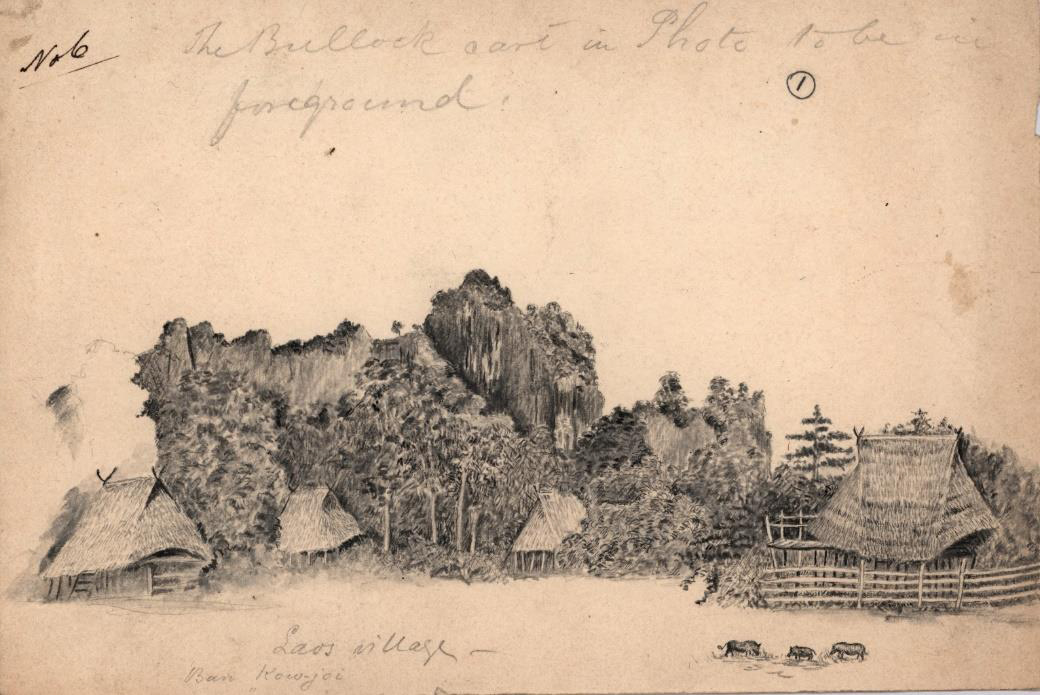 No 6
The Bullock cart in Photo to be in
foreground.
1
Laos village -
Ban Kow-joi